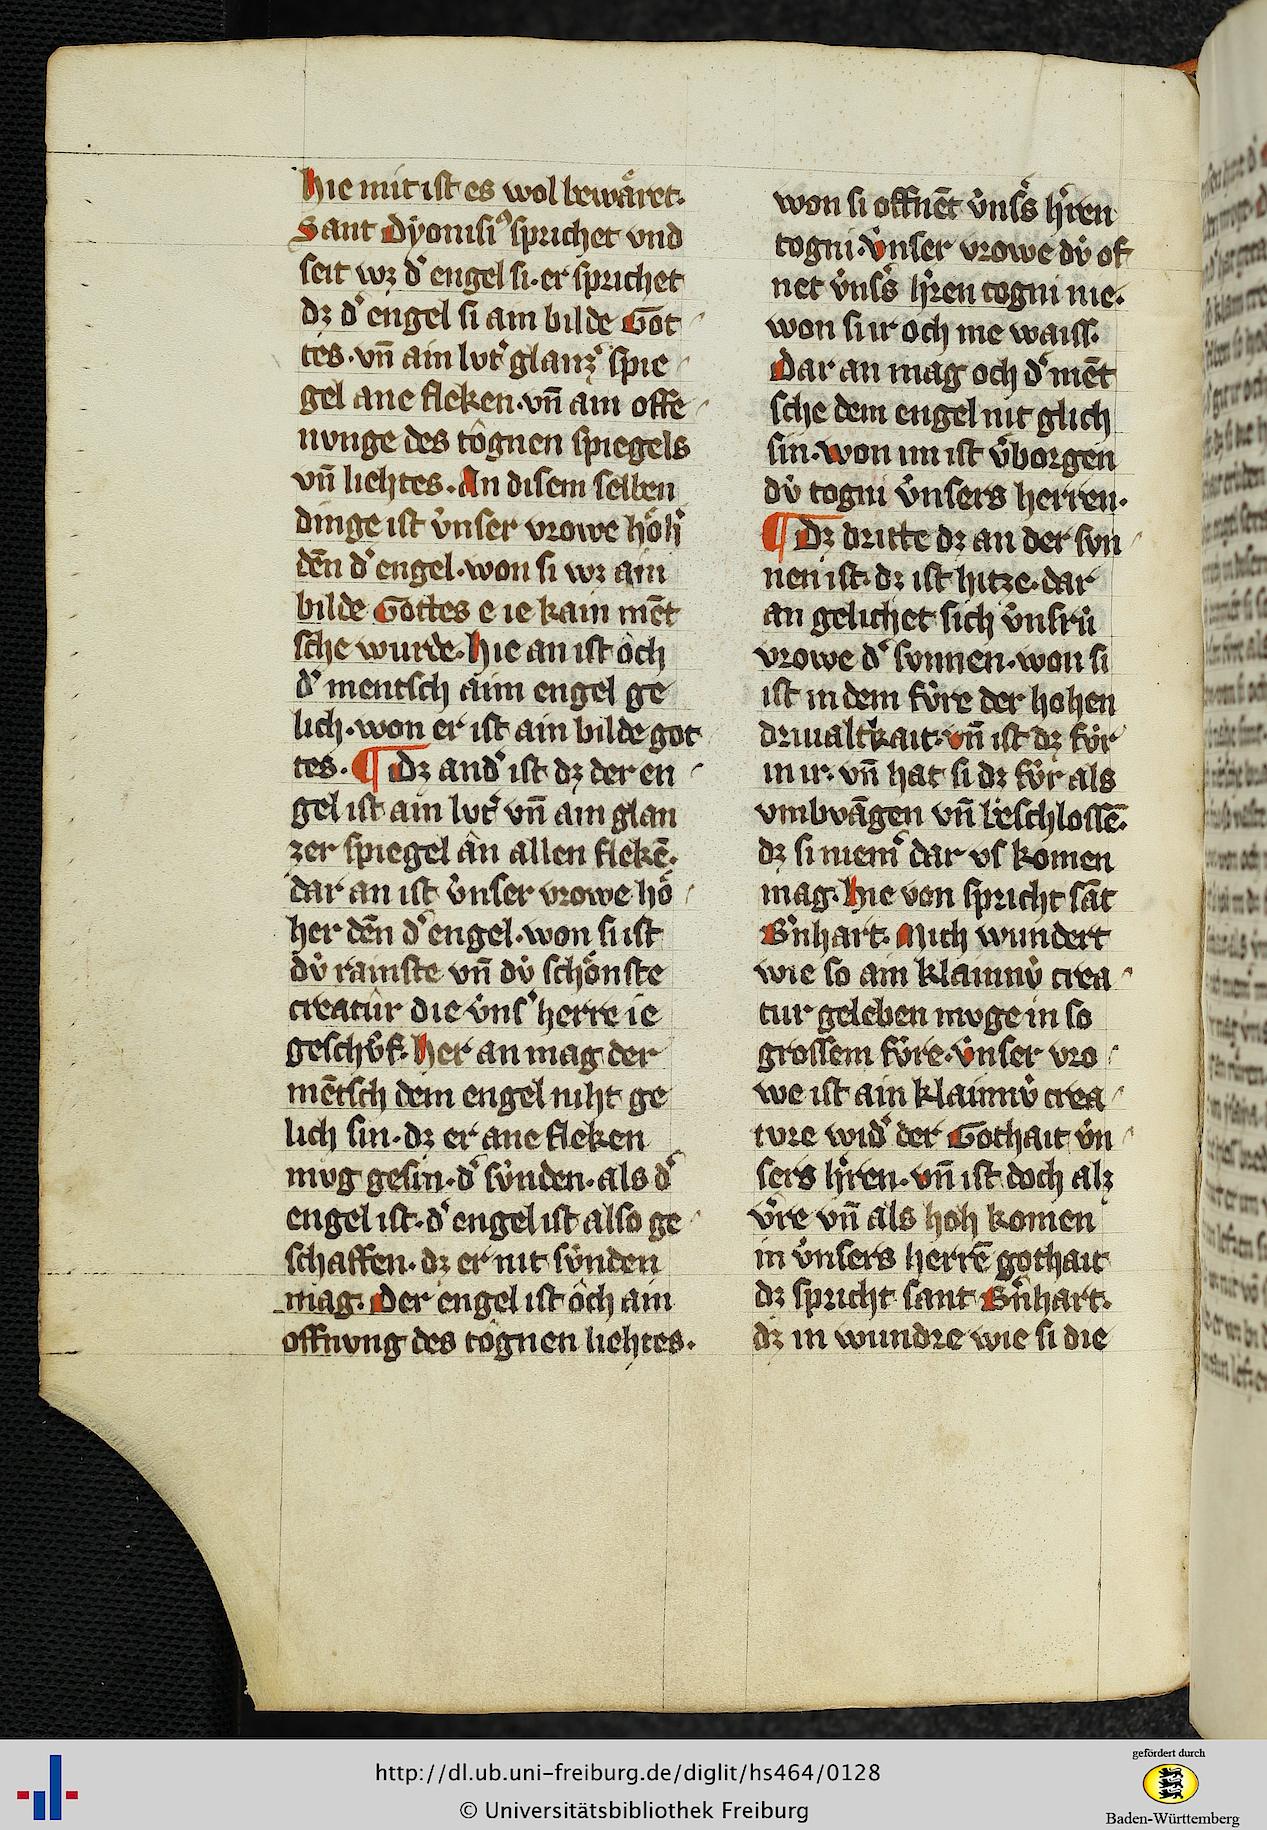 hie mit ist es wol bewaͤret.
Sant Dyonisiꝰ sprichet vnd
seit wz d͛ engel si. er sprichet
dz d͛ engel si ain bilde Got
tes. vn̄ ain lvt͛ glanz͛ spie
gel ane fleken. vn̄ ain offe
nvnge des toͮgnen spiegels
vn̄ liehtes. An disem selben
dinge ist v̓nser vrowe hoͤh͛
dēn d͛ engel. won si wz ain
bilde Gottes e ie kain mēt
sche wurde. hie an ist oͮch
d͛ mentsch aim engel ge
lich. won er ist ain bilde got
tes. ¶ Dz and͛ ist dz der en
gel ist ain lvt͛ vn̄ ain glan
zer spiegel ân allen flekē.
dar an ist v̓nser vrowe hoͤ
her dēn d͛ engel. won si ist
dv̓ rainste vn̄ dv̓ schoͤnste
creatûr die v̓ns͛ herre ie
geschv̊f. her an mag der
mētsch dem engel niht ge
lich sin. dz er ane fleken
mvg gesin. d͛ sv̓nden. als d͛
engel ist. d͛ engel ist also ge
schaffen. dz er nit sv̓nden
mag. Der engel ist oͮch ain
offnvng des toͮgnen liehtes.
won si offnēt v̓ns͛s h͛ren
togni. v̓nser vrowe dv̓ of
net v̓ns͛s h͛ren togni me.
won si ir och me waiss.
Dar an mag och d͛ mēt
sche dem engel nit glich
sin. won im ist v͛borgen
dv̓ togni v̓nsers herren.
¶ Dz dritte dz an der svn
nen ist. dz ist hitze. dar
an gelichet sich v̓nsrv̓
vrowe d͛ svnnen. won si
ist in dem fv̓re der hohen
drivaltkait. vn̄ ist dz fv̓r
in ir. vn̄ hat si dz fv̓r als
vmbvāgen vn̄ beschlossē.
dz si niem͛ dar vs komen
mag. Hie von spricht sāt
B͛nhart. Mich wundert
wie so ain klainnv̓ crea
tur geleben mvge in so
grossem fv̓re. v̓nser vro
we ist ain klainnv̓ crea
tvre wid͛ der Gothait v̓n
sers h͛ren. vn̄ ist doch alz
v͛re vn̄ als hoh komen
in v̓nsers herrē gothait
dz spricht sant B͛nhart.
dz in wundre wie si die
http://dl.ub.uni-freiburg.de/diglit/hs464/0128
© Universitätsbibliothek Freiburg
gefördert durch
Baden-Württemberg